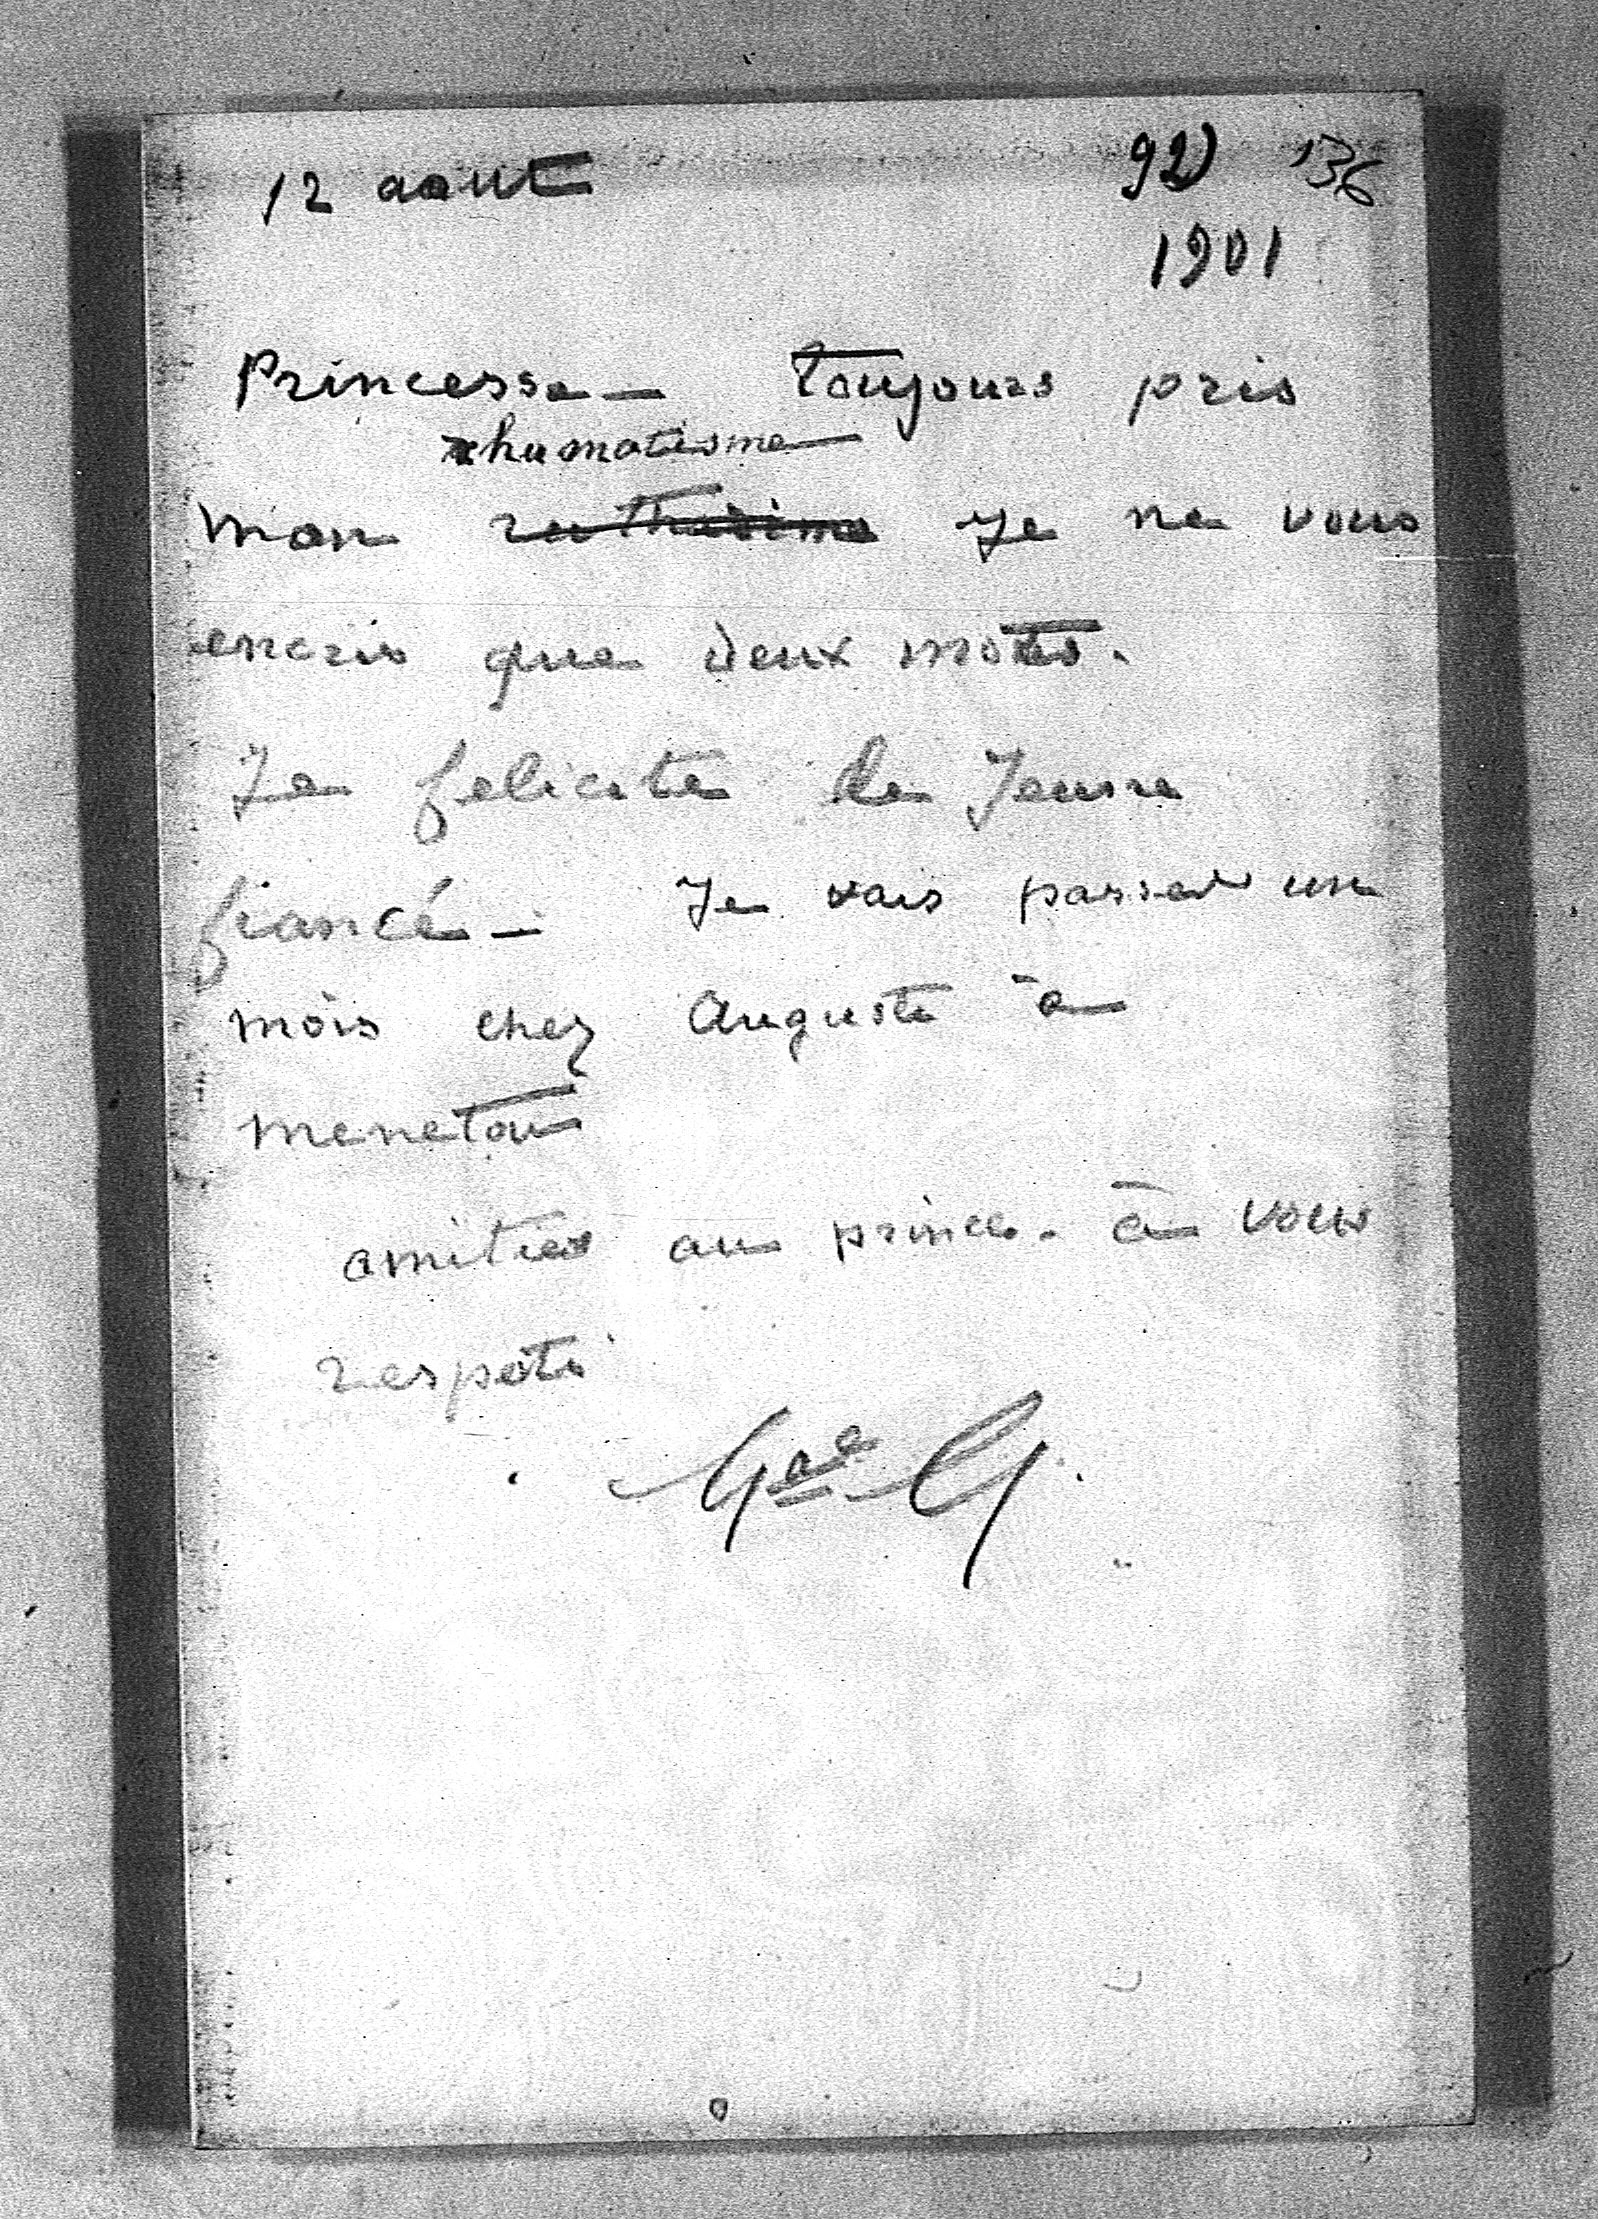 12 aout
92) 136
1901
Princesse — Toujours pris
rhumatisme
mon je ne vous
encris que deux mots.
Je felicite le Jeune
fiancé — Je vais passer un
mois chez Auguste à
menetou
amities au prince. à vous
respets
Gal